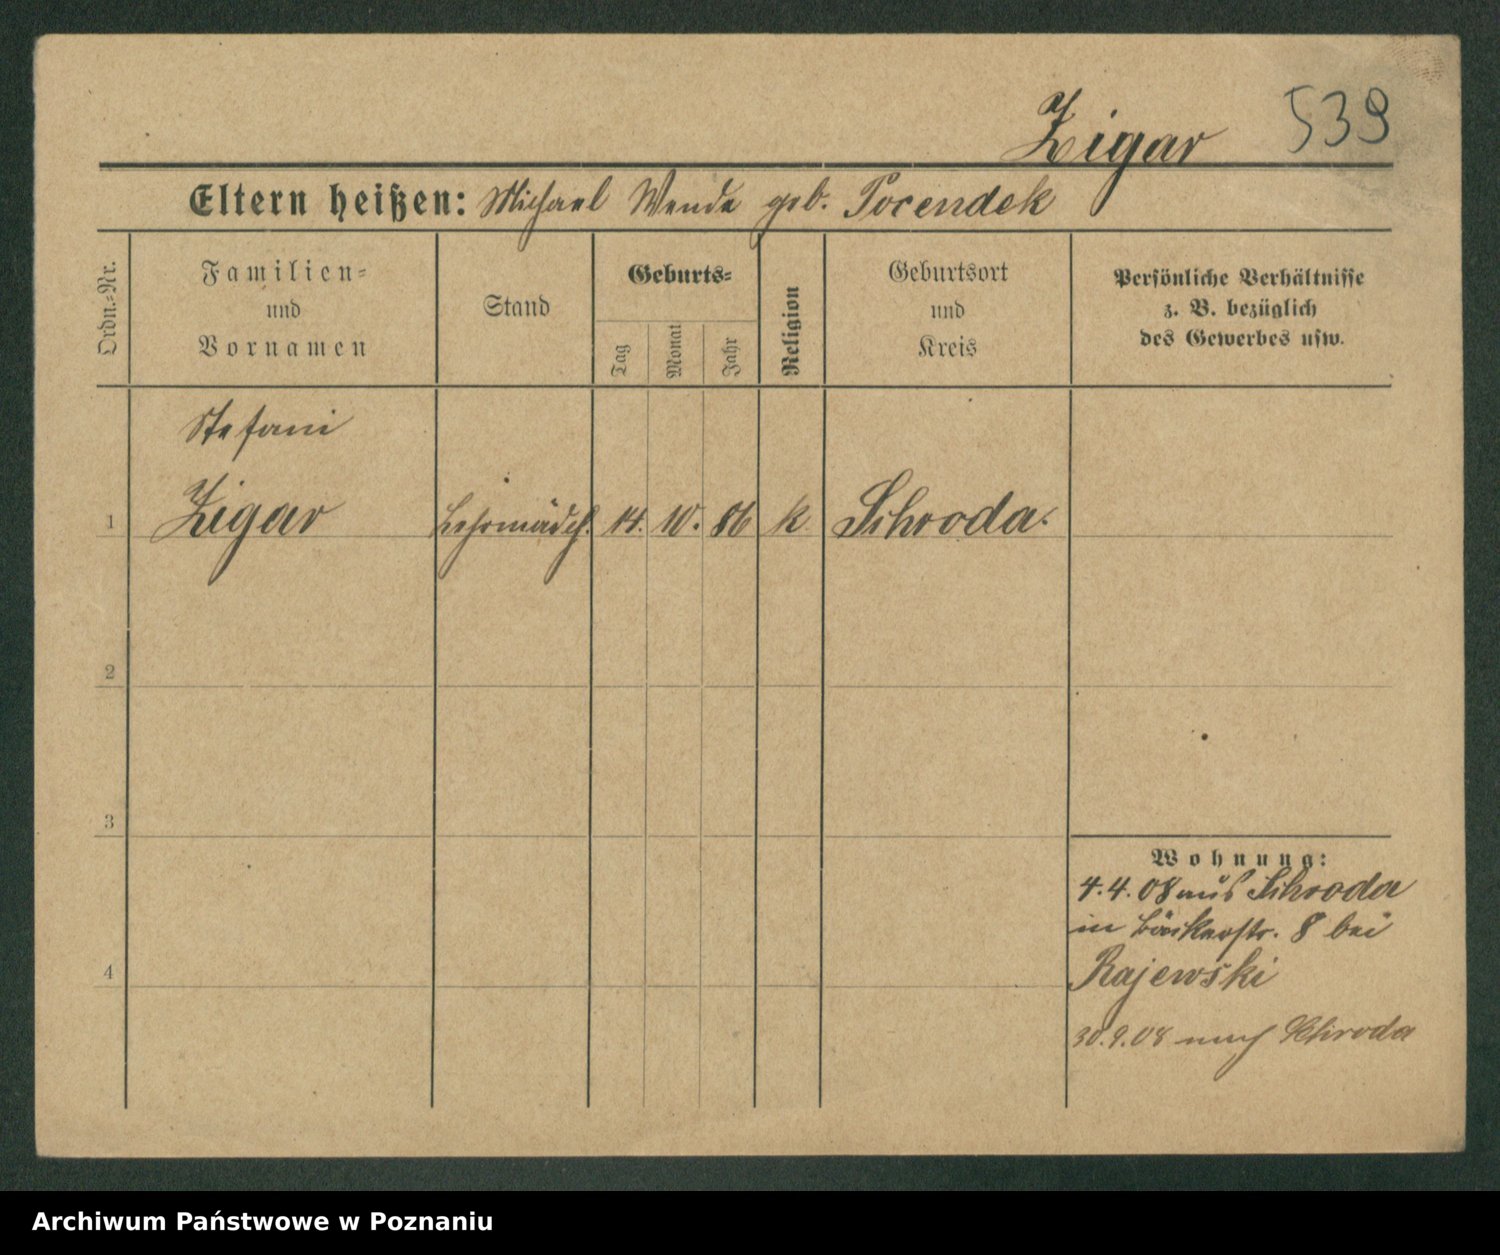 Zigar 539
Eltern heißen: Michael Wende geb. Pocendek
Ordn.-Nr.
Familien-
und
Vornamen
Stand
Geburts-
Tag
Monat
Jahr
Religion
Geburtsort
und
Kreis
Persönliche Verhältnisse
z. B. bezüglich
des Gewerbes usw.
Stefani
1 Zigar Lehrmädch. 14. 10. 86 k Schroda.
2
3
Wohnung:
4.4.08 aus Schroda
in Bäckerstr. 8 bei
4 Rajewski
30.9.08 nach Schroda
Archiwum Państwowe w Poznaniu